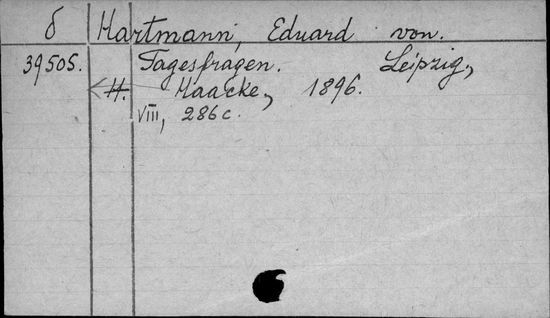 δ Hartmann, Eduard von.
39505. Tagesfragen. Leipzig,
H. Haacke, 1896.
VIII, 286 c.